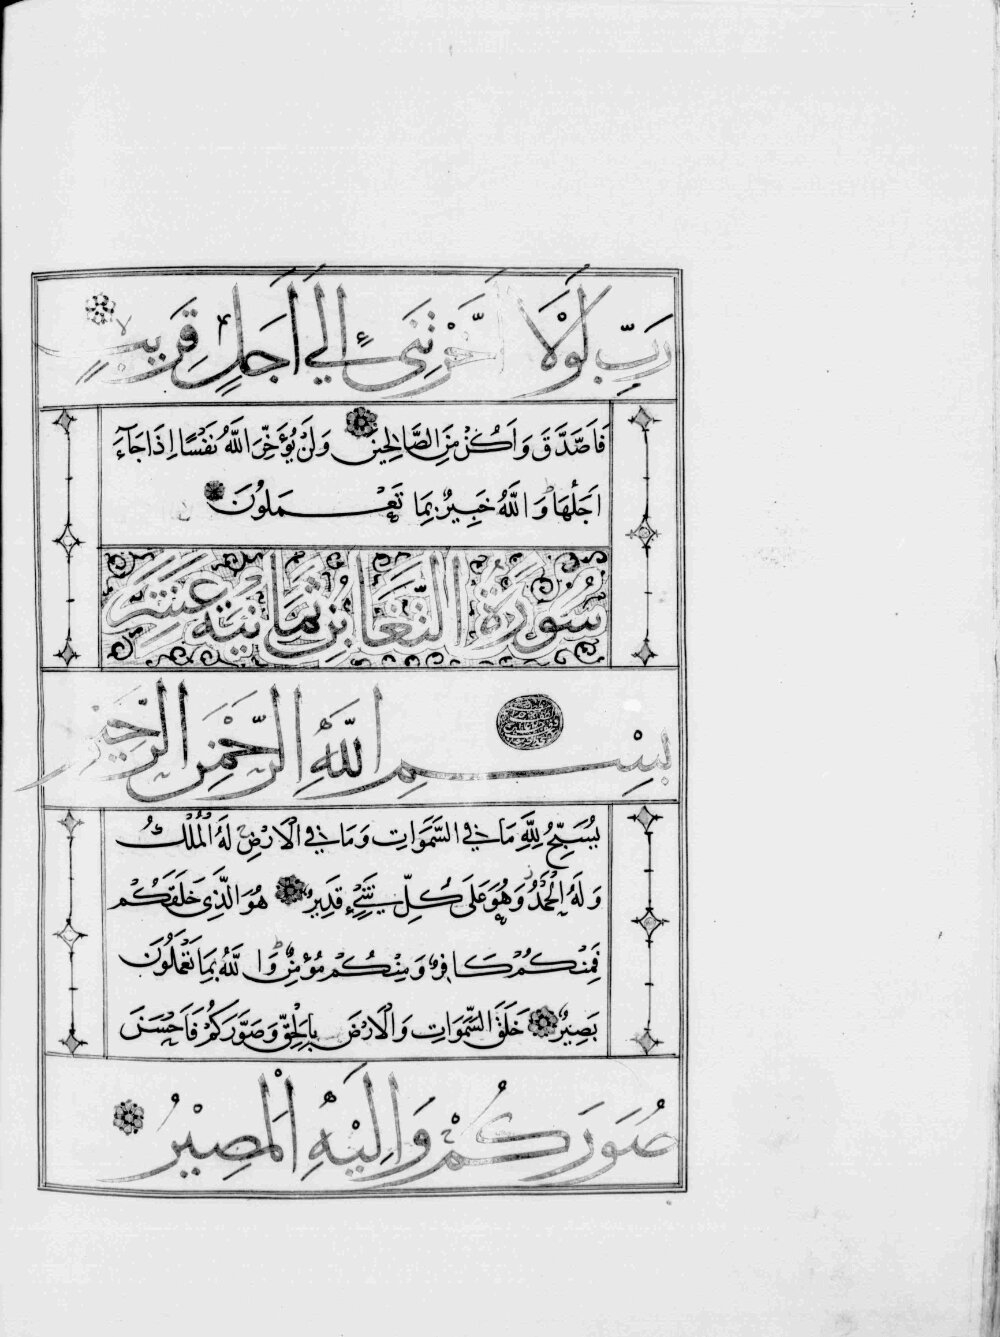 رَبِّ لَوْلَا أَخَّرْتَنِىٓ إِلَىٰٓ أَجَلٍ قَرِيبٍ
فَاَصَّدَّقَ وَاَكُنْ مِنَ الصَّالِحِينَ وَلَنْ يُؤَخِّرَ اللَّهُ نَفْسًا اِذَا جَآءَ
اَجَلُهَا وَاللَّهُ خَبِيرٌ بِمَا تَعْمَلُونَ
سُورَةُ التَّغَابُنِ ثَمَانِيَةَ عَشَرَ
بِسْمِ اللَّهِ الرَّحْمٰنِ الرَّحِيمِ
يُسَبِّحُ لِلَّهِ مَا فِي السَّمَوَاتِ وَمَا فِي الْاَرْضِ لَهُ الْمُلْكُ
وَلَهُ الْحَمْدُ وَهُوَ عَلَى كُلِّ شَيْءٍ قَدِيرٌ هُوَ الَّذِي خَلَقَكُمْ
فَمِنْكُمْ كَافِرٌ وَمِنْكُمْ مُؤْمِنٌ وَاللَّهُ بِمَا تَعْمَلُونَ
بَصِيرٌ خَلَقَ السَّمَوَاتِ وَالْاَرْضَ بِالْحَقِّ وَصَوَّرَكُمْ فَاَحْسَنَ
صُوَرَكُمْ وَاِلَيْهِ الْمَصِيْرُ